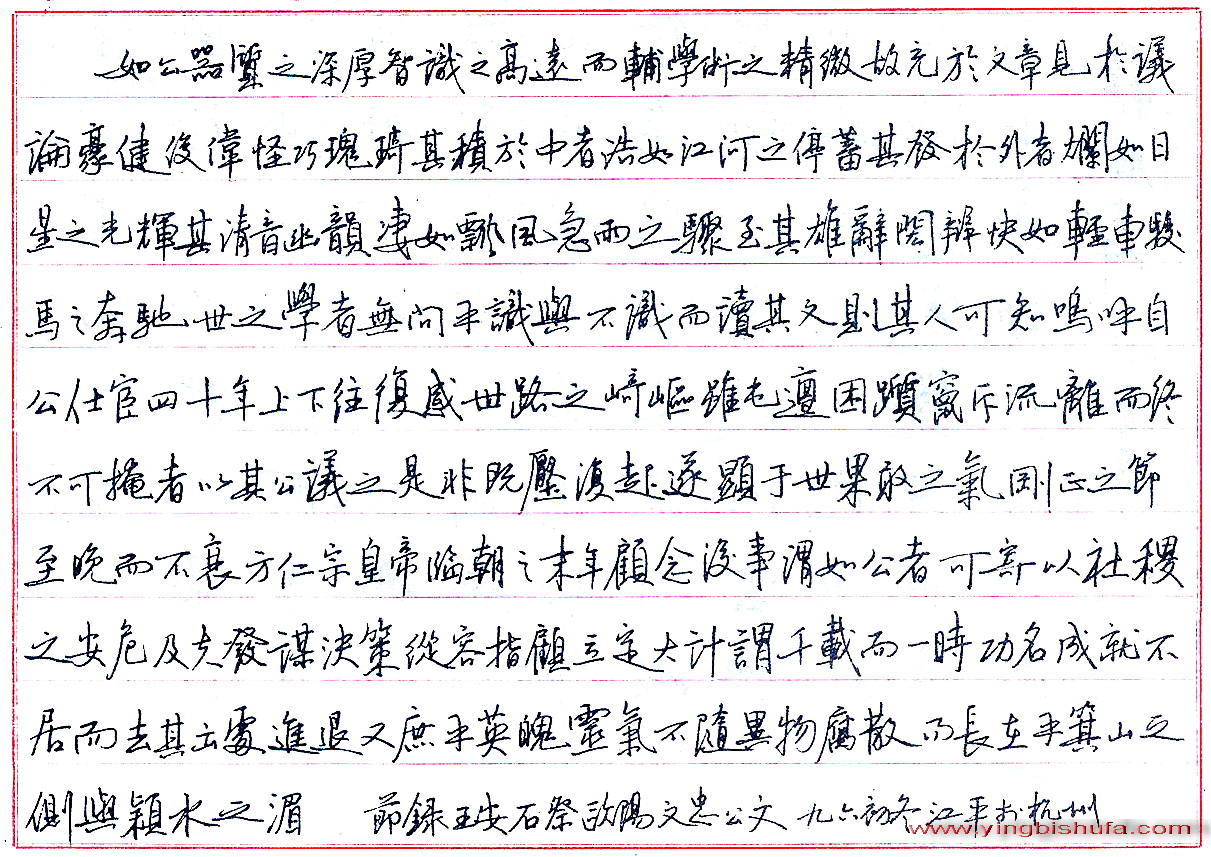 如公器質之深厚智識之高遠而輔學術之精微故充於文章見於議
論豪健俊偉怪巧瑰琦其積於中者浩如江河之停蓄其發於外者爛如日
星之光輝其清音幽韻淒如飄風急雨之驟至其雄辭閎辯快如輕車駿
馬之奔馳世之學者無問乎識與不識而讀其文則其人可知嗚呼自
公仕宦四十年上下往復感世路之崎嶇雖屯邅困躓竄斥流離而終
不可掩者以其公議之是非既壓復起遂顯于世果敢之氣剛正之節
至晚而不衰方仁宗皇帝臨朝之末年顧念後事謂如公者可寄以社稷
之安危及夫發謀決策從容指顧立定大計謂千載而一時功名成就不
居而去其出處進退又庶乎英魄靈氣不隨異物腐散而長在乎箕山之
側與潁水之湄 節錄王安石祭歐陽文忠公文 九六初冬江平於杭州
www.yingbishufa.com